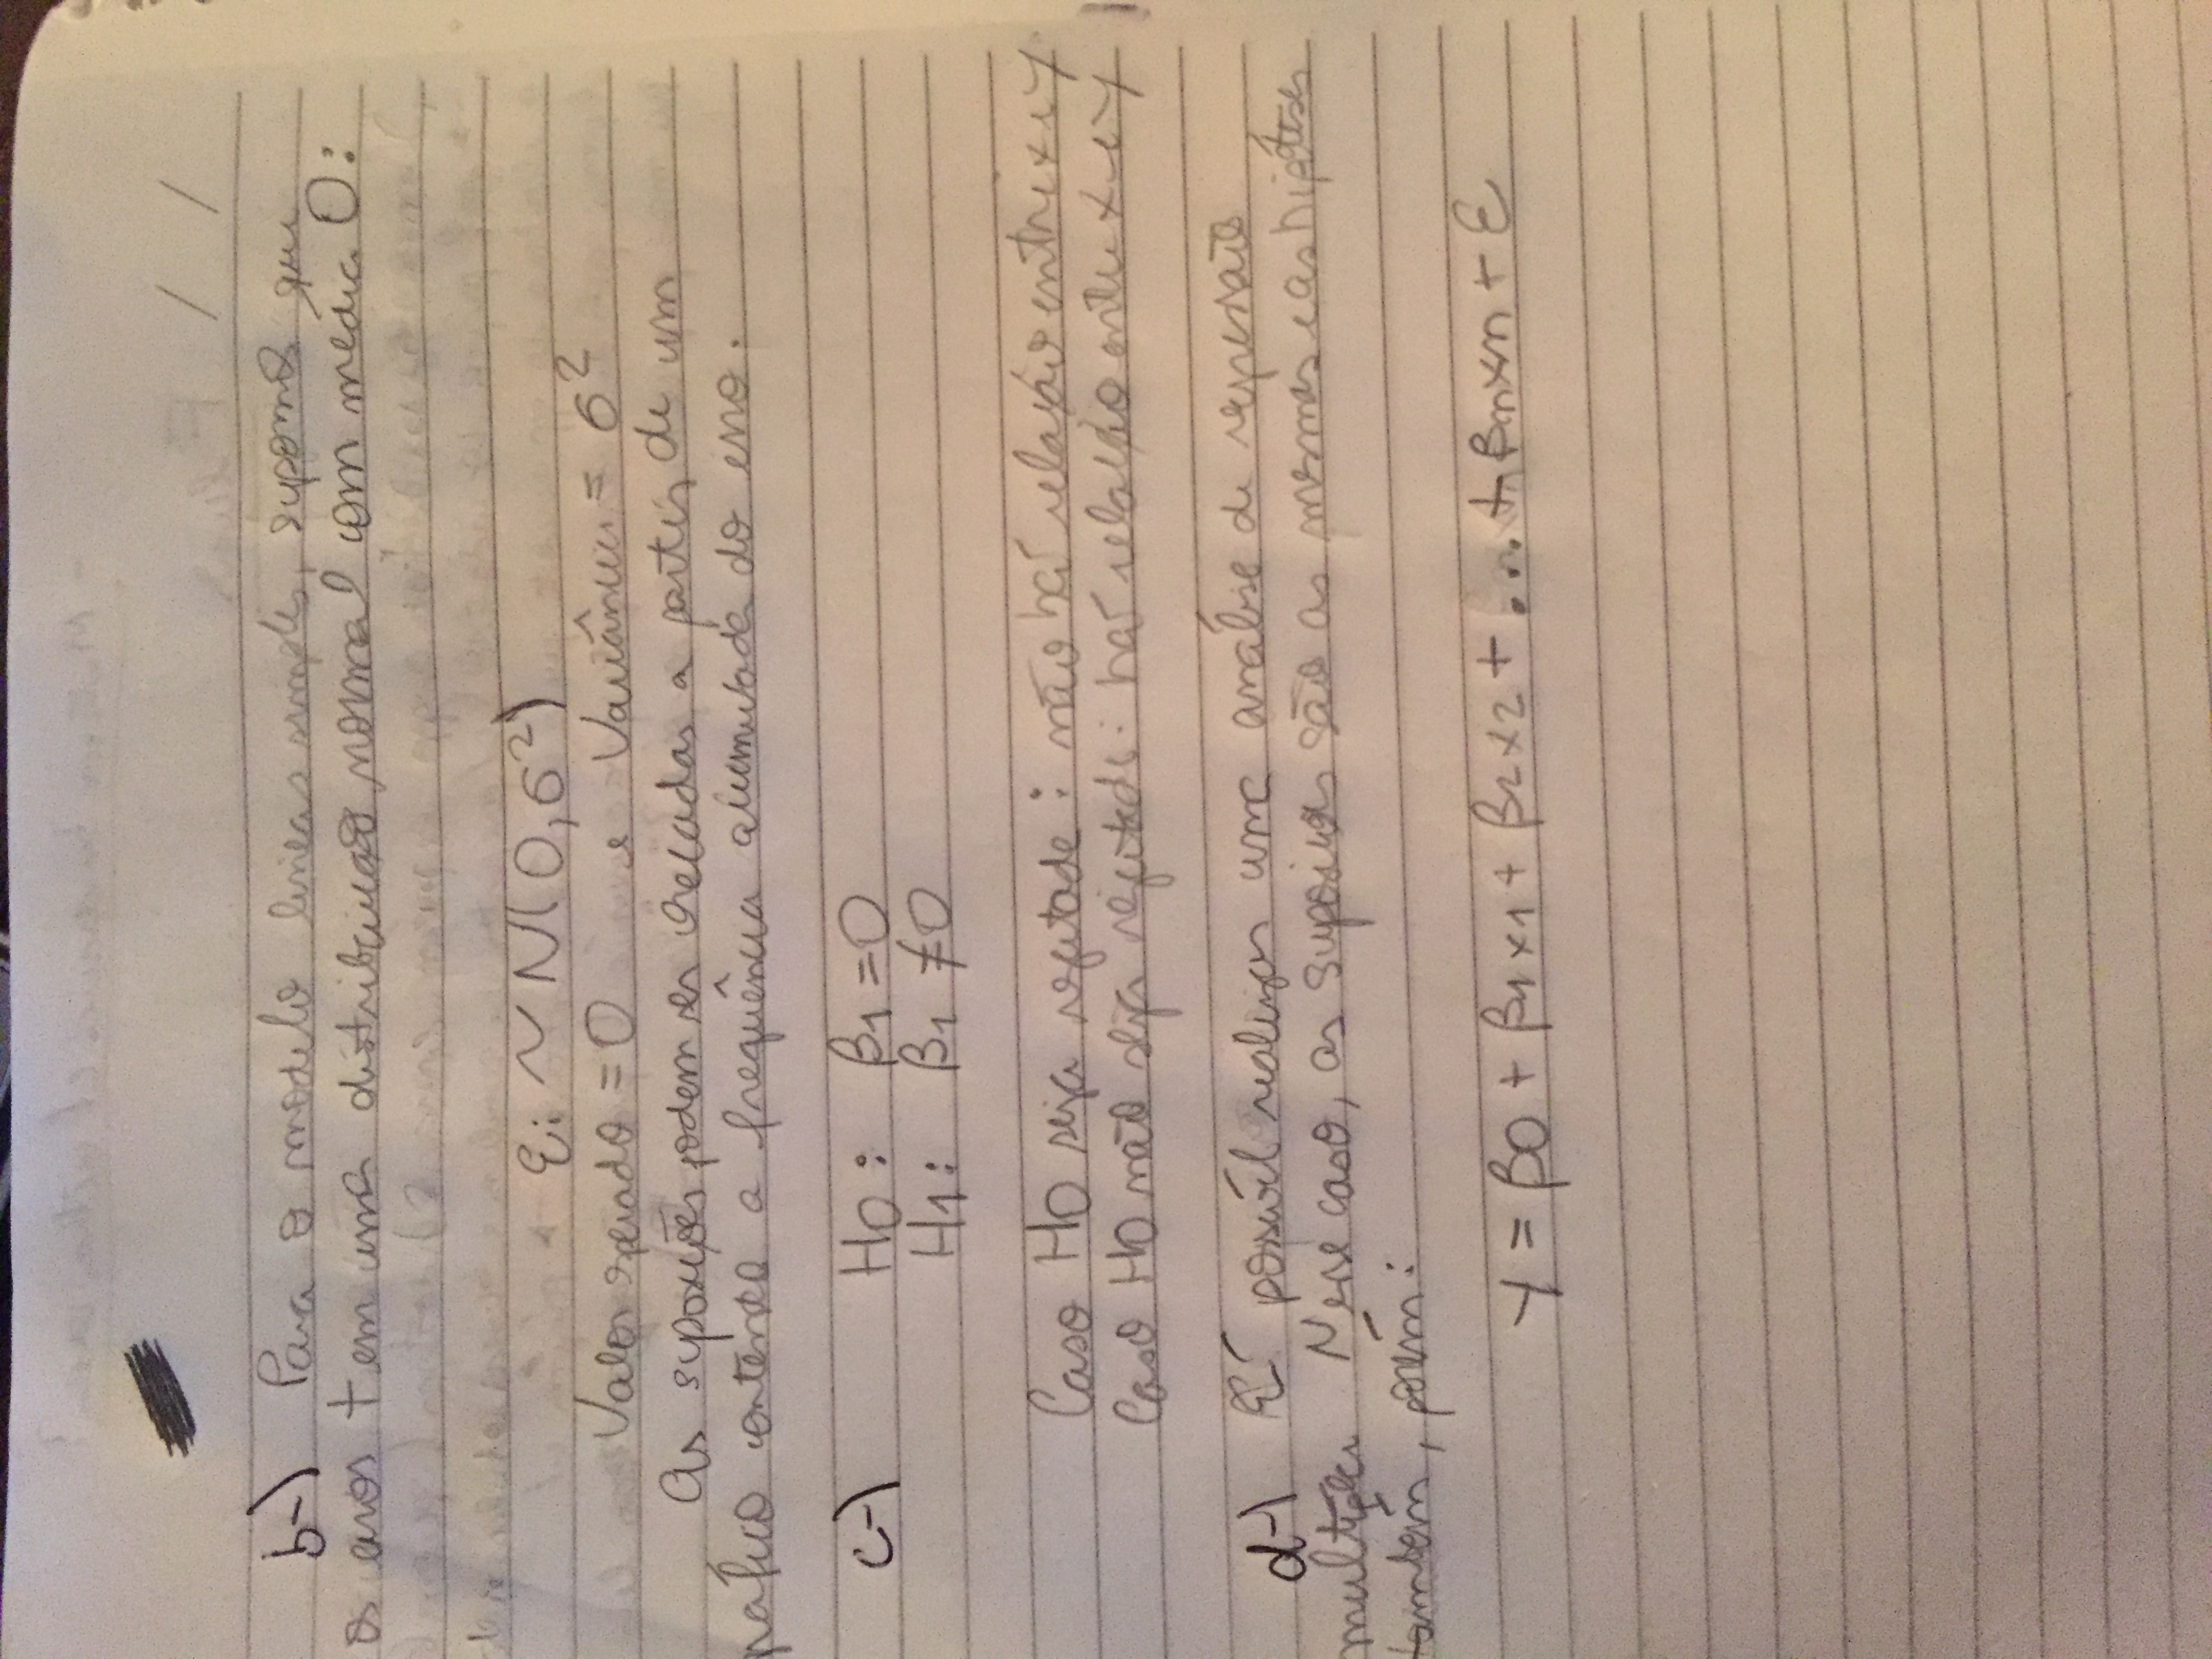 / /
b-) Para o modelo linear simples, supomos que
os erros tem uma distribuição normal com média 0:
Ei ~ N(0,σ²)
Valor esperado = 0 e Variância = σ²
As suposições podem ser checadas a partir de um
ráfico contendo a frequência acumulada do erro.
c-) H0: β1 = 0
H1: β1 ≠ 0
Caso H0 seja rejeitada: não há relação entre x e y
Caso H0 não seja rejeitada: há relação entre x e y
d-) É possível realizar uma análise de regressão
multipla. Nesse caso, as suposições são as mesmas e as hipóteses
também, porém:
Y = β0 + β1x1 + β2x2 + ... + βnxn + E